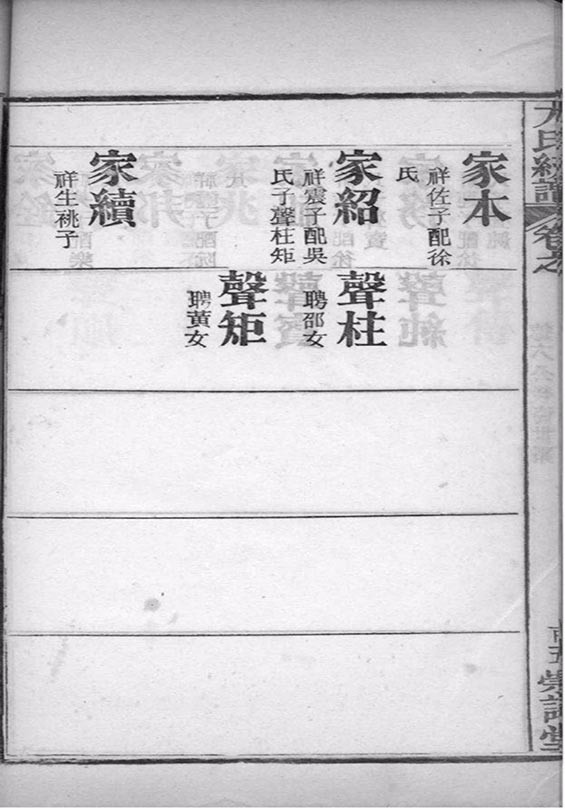 家本
祥佐子配徐
氏
家紹
祥震子配吳
氏子聲柱矩
家續
祥生祧子
聲柱
聘邵女
聲矩
聘黃女
氏統譜
卷之
五
堂